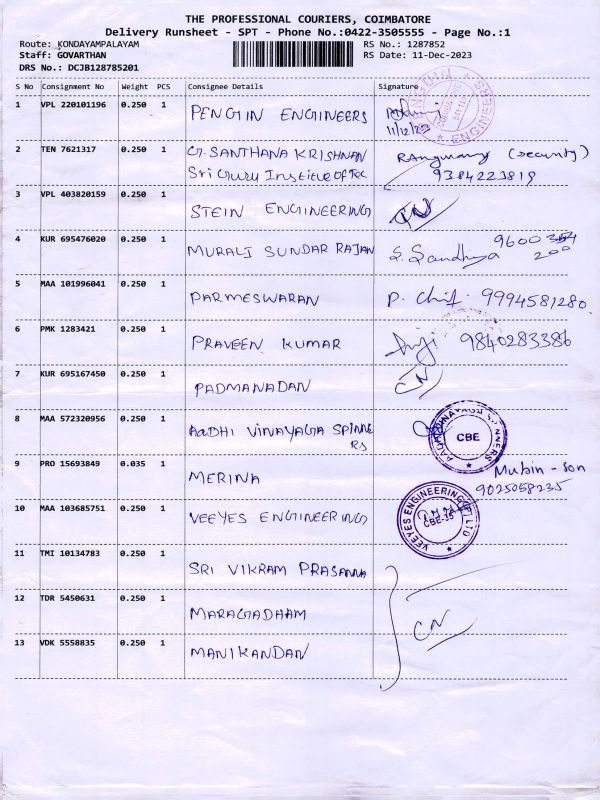 THE PROFESSIONAL COURIERS, COIMBATORE
Delivery Runsheet - SPT - Phone No.:0422-3505555 - Page No.:1
Route: KONDAYAMPALAYAM RS No.: 1287852
Staff: GOVARTHAN RS Date: 11-Dec-2023
DRS No.: DCJB128785201
S No Consignment No Weight PCS Consignee Details Signature
1 VPL 220101196 0.250 1 PENGIN ENGINEERS
11/12/23
ENGINEERS
2 TEN 7621317 0.250 1 G. SANTHANA KRISHNAN (security)
Sri Guru Institue of Tec 9384223819
3 VPL 403820159 0.250 1 STEIN ENGINEERING
4 KUR 695476020 0.250 1 MURALI SUNDAR RAJAN S. Sandhiya 9600
200
5 MAA 101996041 0.250 1 PARMESWARAN P. Chif. 9994581280
6 PMK 1283421 0.250 1 PRAVEEN KUMAR 9840283386
7 KUR 695167450 0.250 1 PADMANADAN CN
8 MAA 572320956 0.250 1 AADHI VINAYAGA SPINNE
RS
AADHI VINAYAGA SPINNERS
CBE
9 PRO 15693849 0.035 1 MERINA Mubin - son
9025058235
10 MAA 103685751 0.250 1 VEEYES ENGINEERING
VEEYES ENGINEERING P LTD
CBE-35
11 TMI 10134783 0.250 1 SRI VIKRAM PRASANNA
12 TDR 5450631 0.250 1 MARAGADHAM CN
13 VDK 5558835 0.250 1 MANIKANDAN